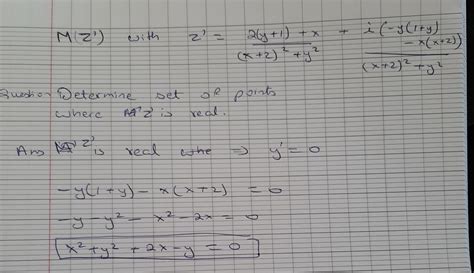 M(Z') with z' = 2(y+1) + x / (x+2)² + y² + i(-y(1+y) - x(x+2)) / (x+2)² + y²
Question Determine set of points
where Z' is real.
Ans Z' is real whe ⇒ y' = 0
-y(1+y) - x(x+2) = 0
-y - y² - x² - 2x = 0
x² + y² + 2x - y = 0